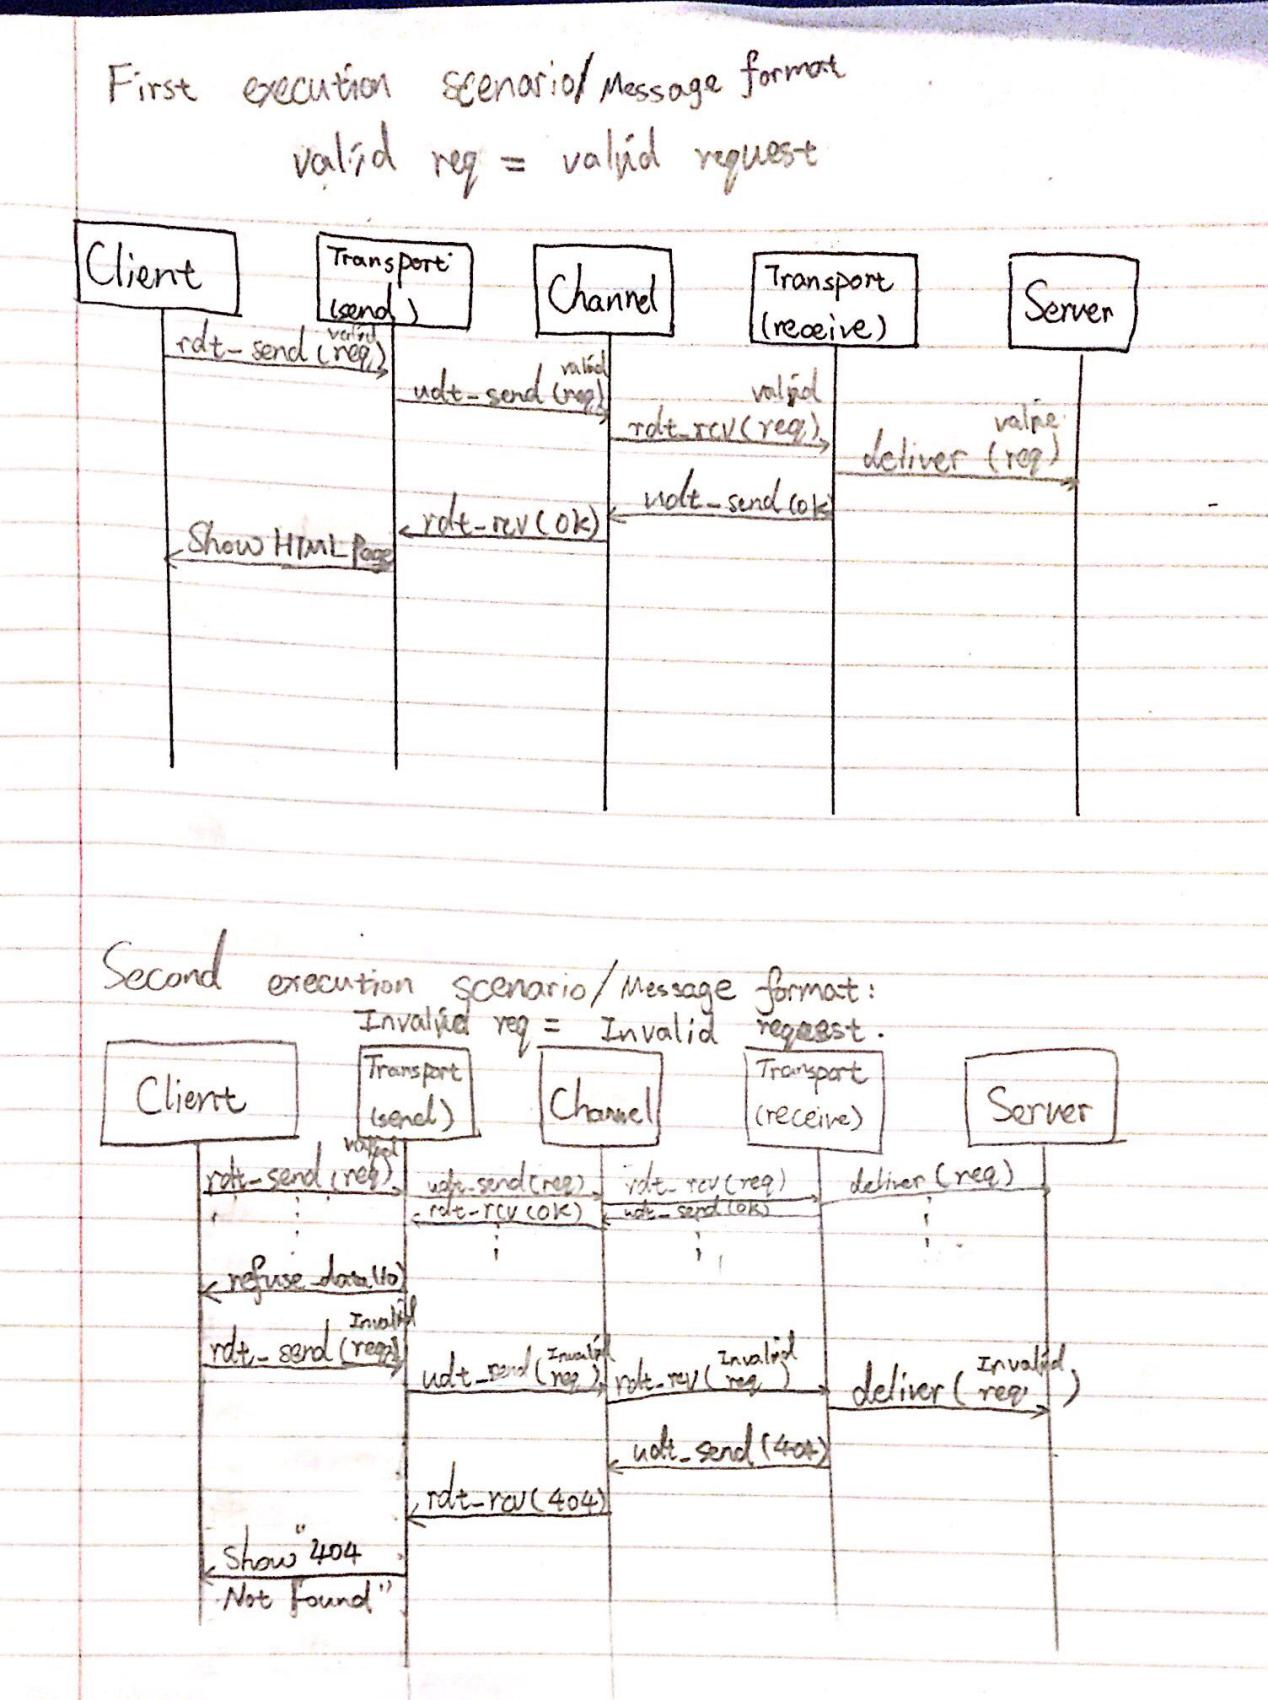 First execution scenario/Message format
valid req = valid request
Client
Transport
(send)
Channel
Transport
(receive)
Server
rdt_send(valid req)
udt_send(valid req)
rdt_rcv(valid req)
deliver (req)
udt_send(ok
rdt_rcv(ok)
Show HTML Page
Second execution scenario/Message format:
Invalid req = Invalid request.
Client
Transport
(send)
Channel
Transport
(receive)
Server
rdt_send(valid req)
udt_send(req)
rdt_rcv(req)
deliver(req)
rdt_rcv(ok)
udt_send(ok)
refuse_data(
rdt_send(Invalid req)
udt_send(Invalid req)
rdt_rcv(Invalid req)
deliver(Invalid req)
udt_send(404)
rdt_rcv(404)
Show "404
Not Found"